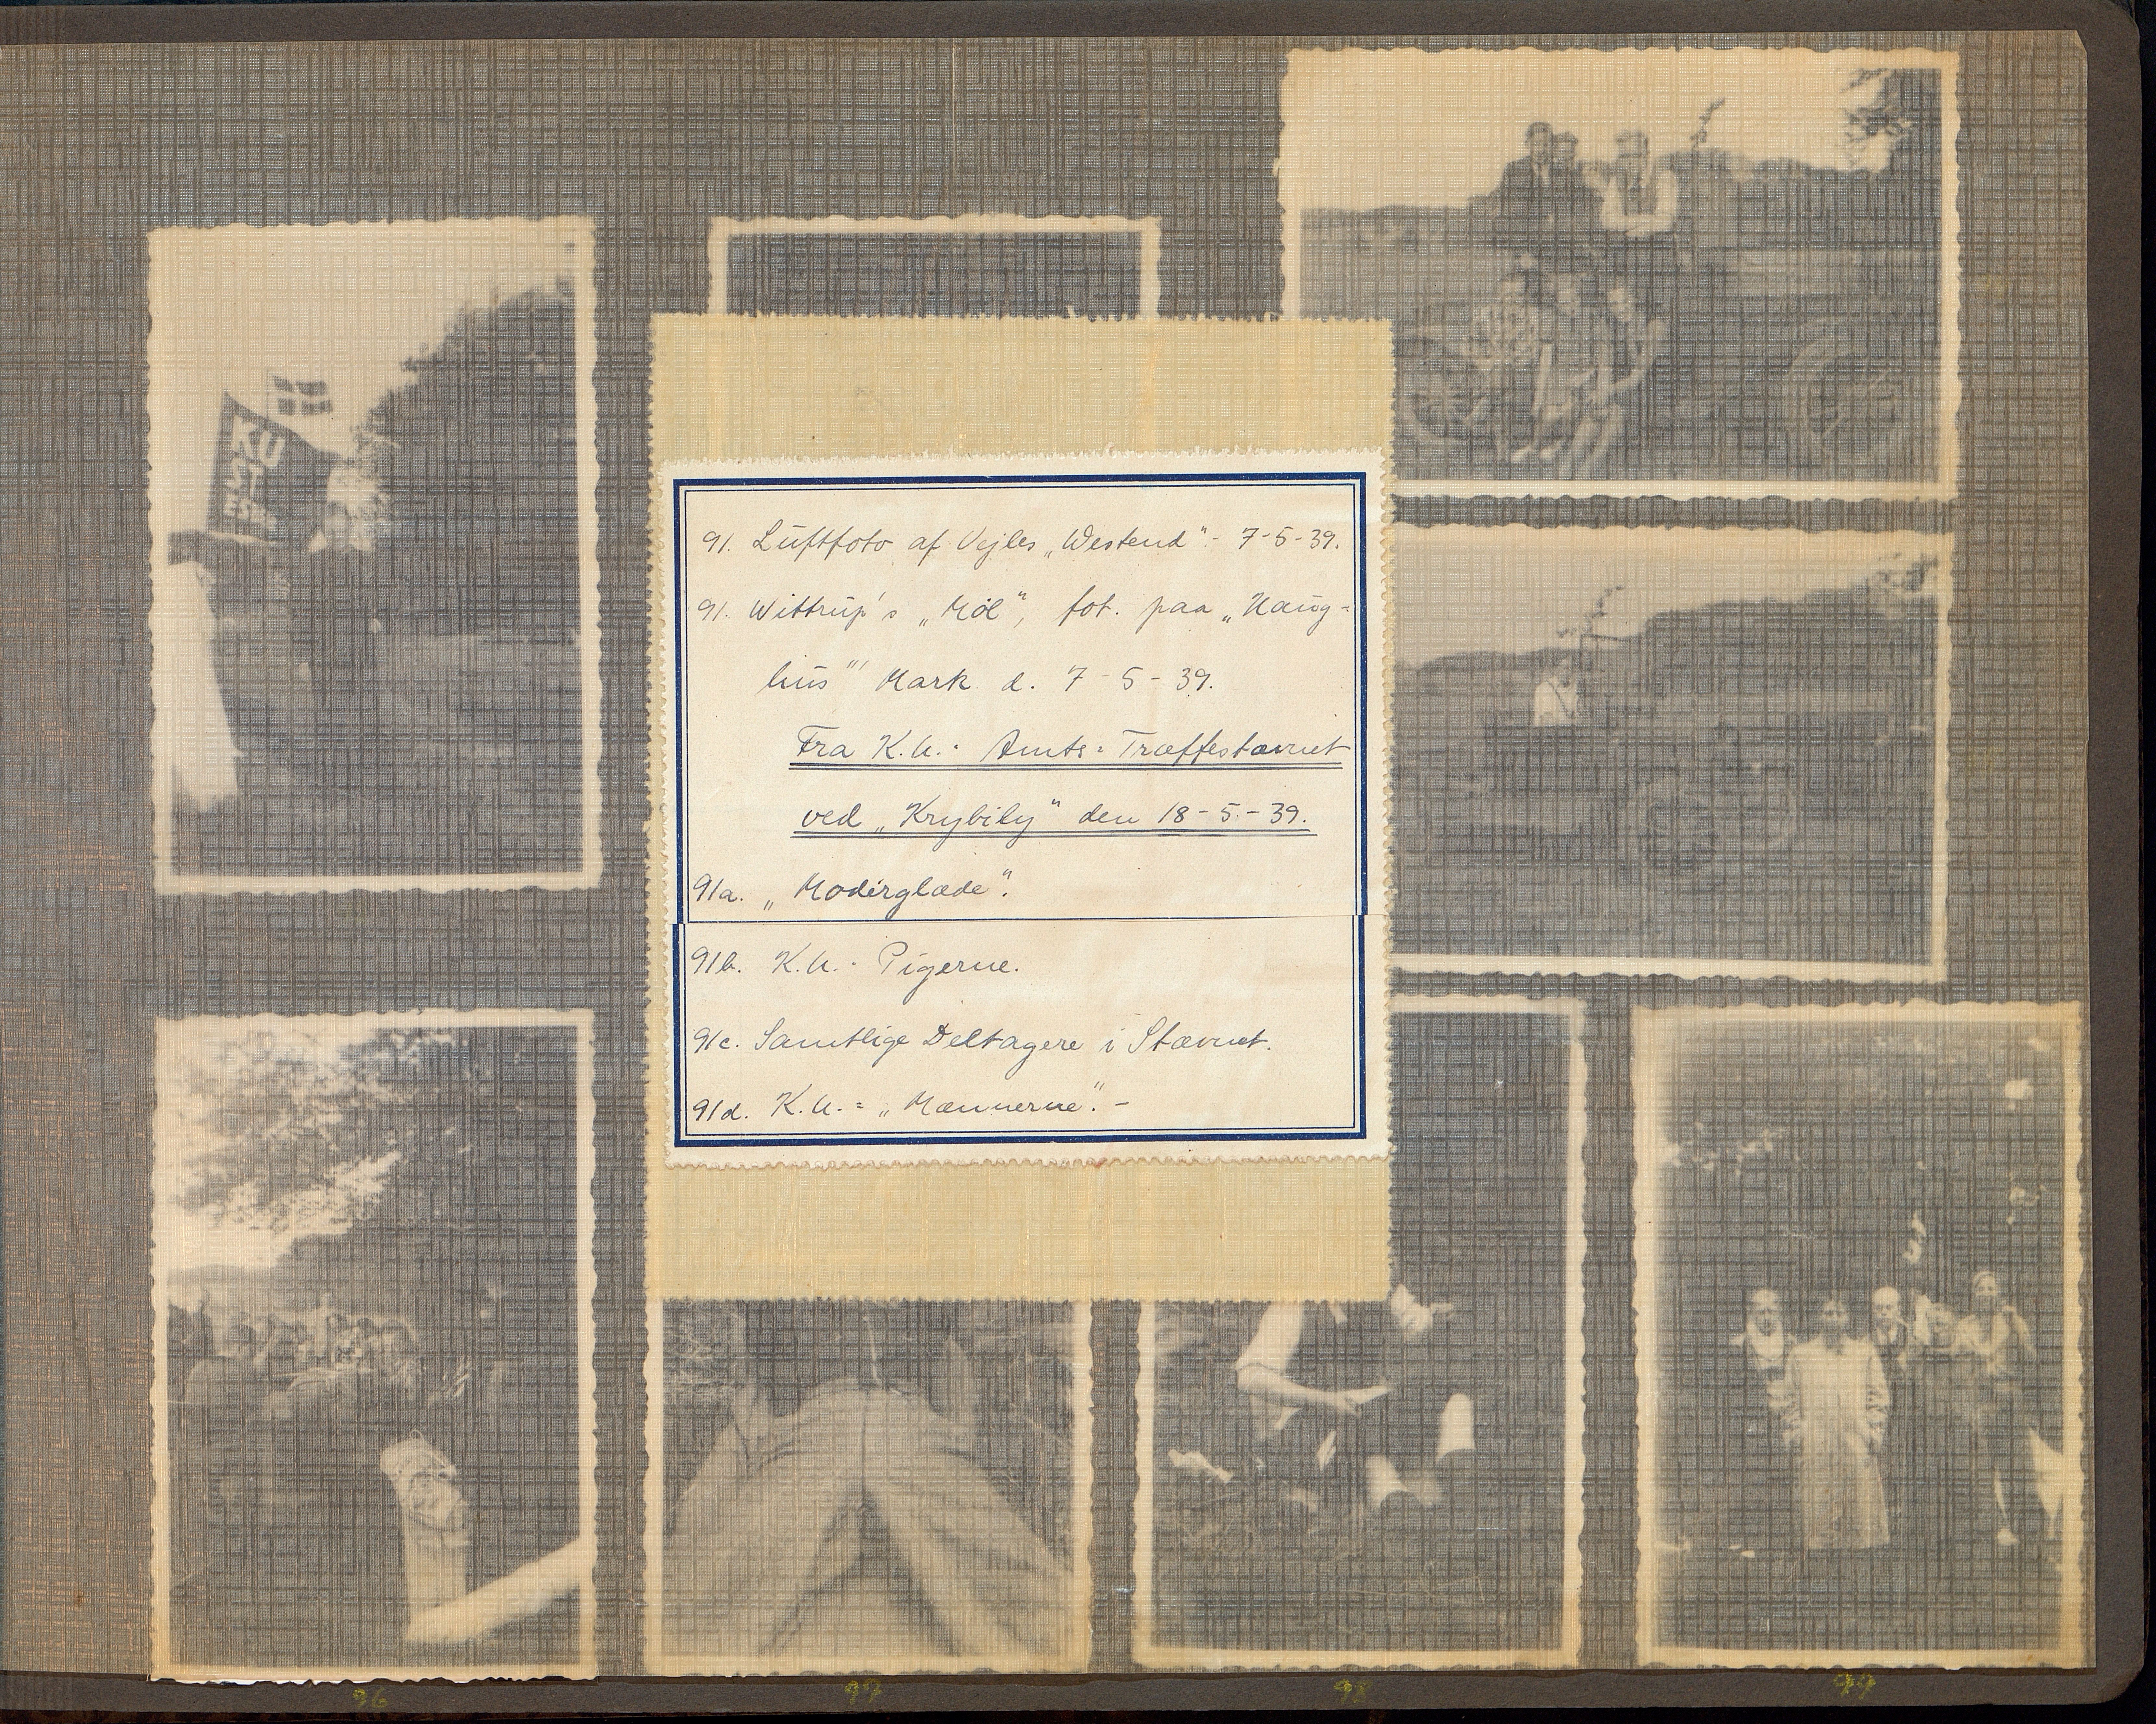 KU
91. Luftfoto af Vejles „Westend" - 7-5-39.
91. Wittrup's „Möl", fot. paa „Haug-
hus"' Mark d. 7-5-39.
Fra K.U.- Amts- Træffestævnet
ved „Krybily" den 18-5-39.
91a. „Moderglæde".
91b. K.U.- Pigerne.
91c. Samtlige Deltagere i Stævnet.
91d. K.U.= „Mænnerne". -
96 97 98 99